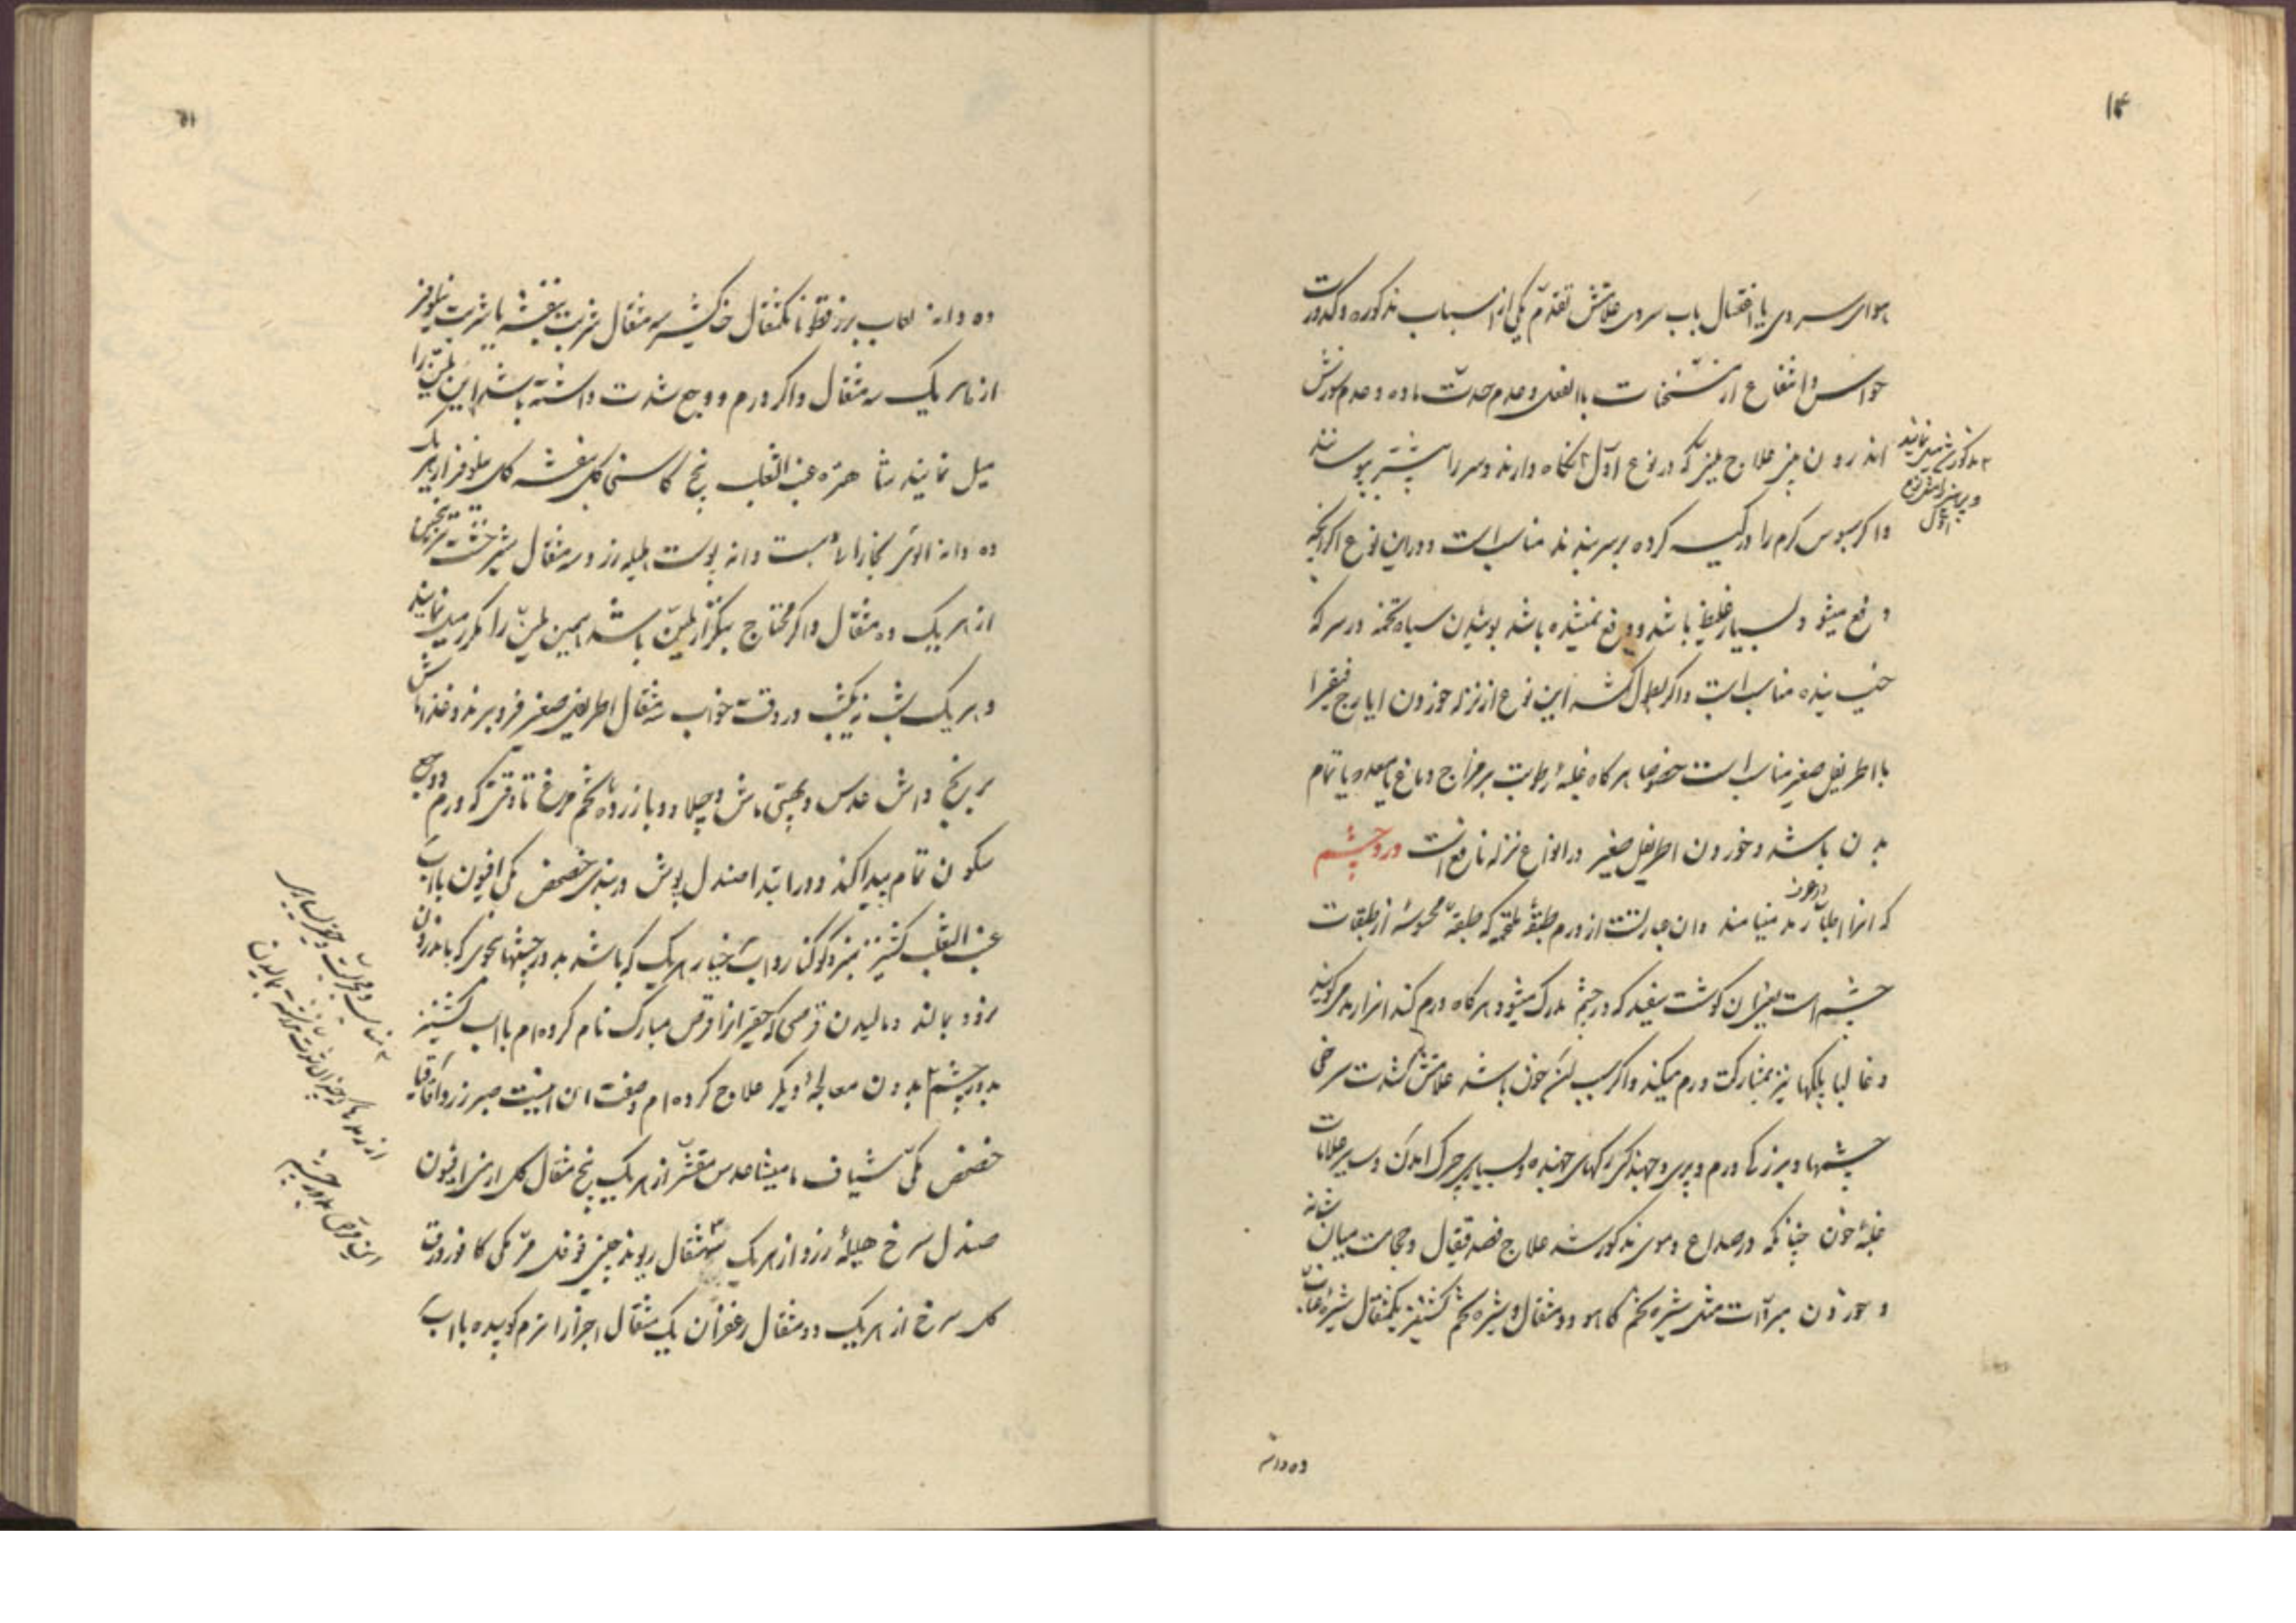 ۱۴
هوای سرد یا اغتسال باب سرد علامتش تقدم یکی از اسباب مذکوره و کدورت
حواس و انتفاع از مسخنات بالفعل و عدم حدت ماده و عدم سوزش
اندرون بینی علاج ملین که در نوع اول نگاه دارند و سر را پیشتر بپوشانند
مذکور شد میل نمایند
و پرهیز نوع
اول
و اگر سبوس گرم را در کیسه کرده بر سر بندند مناسب است و در این نوع اگر آنچه
دفع میشود بسیار غلیظ باشد و دفع نمیشده باشد بوئیدن سیاه تخمه در سرکه
خیسانیده مناسب است و اگر بطول کشد این نوع از نزله خوردن ایارج فیقرا
با اطریفل صغیر مناسب است خصوصا هر گاه غلبهٔ رطوبت بر مزاج دماغ یا معده یا تمام
بدن باشد و خوردن اطریفل صغیر در انواع نزله نافع است درد چشم
که انرا اطبا رمد مینامند و ان عبارتست از ورم طبقهٔ ملتحمه که طبقهٔ محسوسهٔ از طبقات
در عرف
چشم است یعنی ان گوشت سفید که در چشم مدرک میشود هر گاه ورم کند انرا رمد میگویند
و غالبا پلکها نیز بمشارکت ورم میکند و اگر سبب ان خون باشد علامتش شدت سرخی
چشمها و بزرگی ورم و پری و جهندگی رگهای جهنده و بسیاری چرک امدن و سایر علامات
غلبهٔ خون چنانکه در صداع دموی مذکور شد علاج فصد قیفال و حجامت میان شانه
و خوردن مبردات مثل شیره تخم کاهو دو مثقال و شیره تخم کشنیز یکمثقال شیرهٔ عناب
ده دانه
۱۵
ده دانه لعاب بزر قطونا یکمثقال خاکشیر سه مثقال شربت بنفشه یا شربت نیلوفر
از هر یک سه مثقال و اگر ورم و وجع شدت داشته باشد این ملین را
میل نمایند شاهتره عنب الثعلب بیخ کاسنی گل بنفشه گل نیلوفر از هر یک
ده دانه الوی بخارا بیست دانه پوست هلیله زرد سه مثقال شیرخشت ترنجبین
از هر یک ده مثقال و اگر محتاج بتکرار ملین باشد همین ملین را مکرر میل نمایند
و هر یک شب نه یکشب در وقت خواب سه مثقال اطریفل صغیر فرو برند و غذا ماش
برنج و اش عدس و کهچری ماش و چلاو و با زرده تخم مرغ تا وقتی که ورم و وجع
سکون تمام پیدا کند و در ابتدا صندل بوش دربندی حضض مکی افیون با اب
عنب الثعلب کشنیز سبز و کوکنار و اب خیار هر یک که باشد بدور چشمها بنحوی که باندرون
نرود بمالند و مالیدن قرصی که حقیر انرا قرص مبارک نام کرده ام با اب کشنیز
بدور چشم بدون معالجهٔ دیگر علاج کرده ام و صفت ان اینست صبر زرد اقاقیا
حضض مکی شیاف مامیثا عدس مقشر از هر یک پنج مثقال گل ارمنی افیون
صندل سرخ هلیلهٔ زرد از هر یک سه مثقال ریوند چینی فوفل مر مکی کافور ورق
گل سرخ از هر یک دو مثقال زعفران یک مثقال اجزا را نرم کوبیده با اب